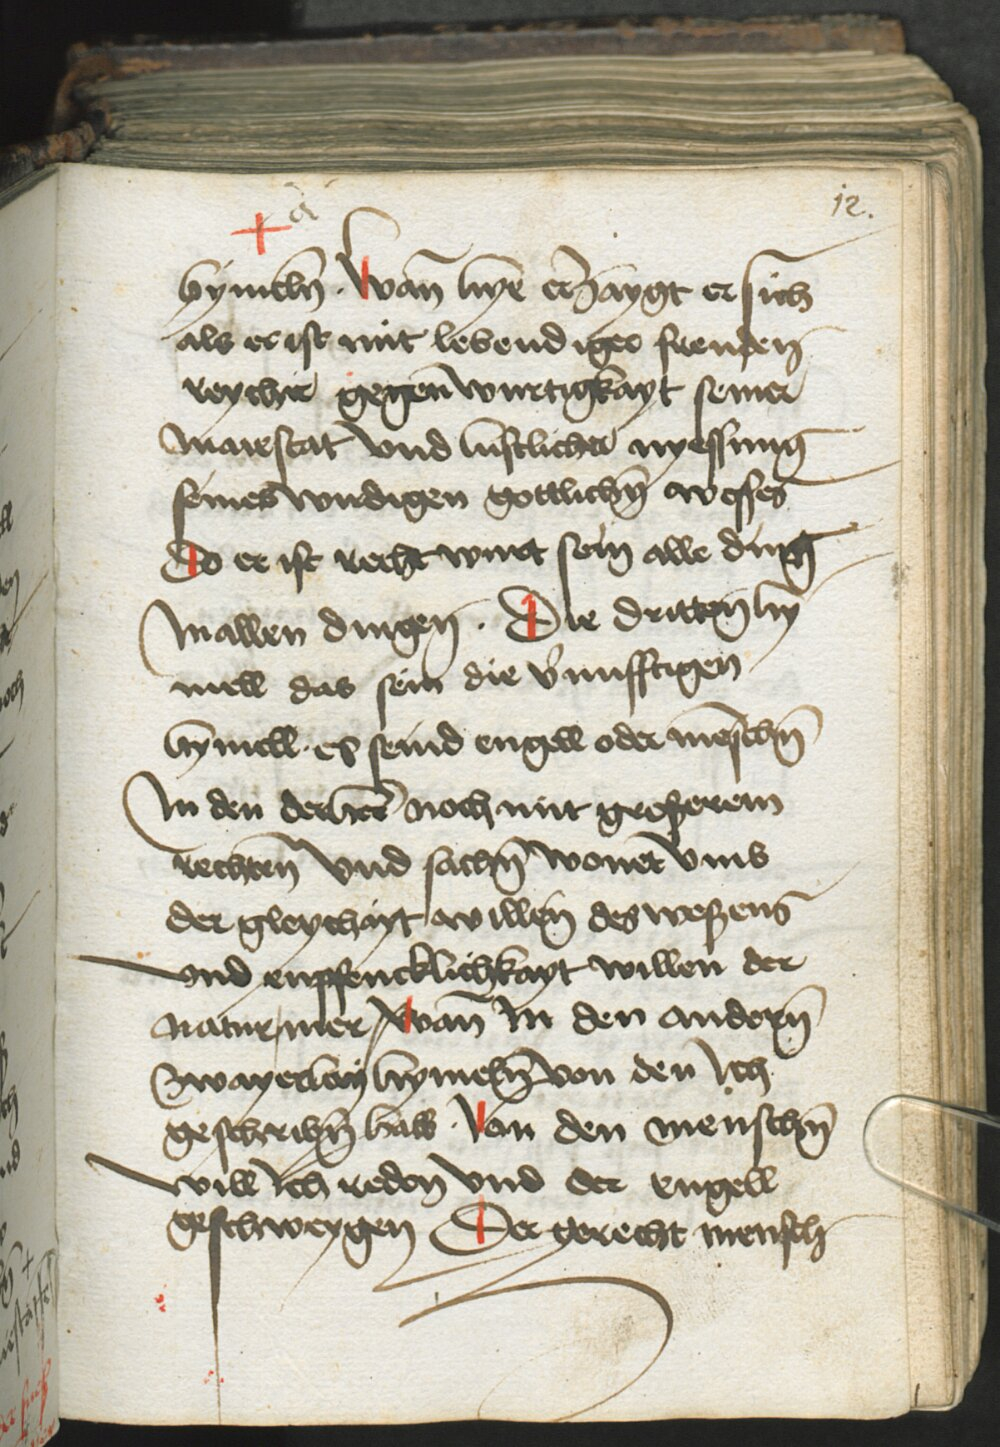 12.
hymeln̄ . Wan̄ hye erzaygt er sich
als er ist mit lebendiger freuden̄
reycher gegen wurtigkayt seiner
Maiestat vnd lustlicher nyessung
seines wirdigen gottlichn̄ wesses
Do er ist recht wirt sein alle ding
In allen dingen̄ . Die dritten̄ hy
mell das sein die v̄nufftigen
hymell . es seind engell oder menschn̄
In den der herr noch mit groserem
rechten̄ vnd sachn̄ wonet vmb
der gleychayt willen̄ des wesens
vnd enpfencklichkayt willen der
natur / mer / Wan̄ In den andern̄
Zwayerlay hymeln̄ von den Ich
geschribn̄ hab . Von den menschn̄
will Ich reden vnd der engell
geschweygen Der gerecht mensch